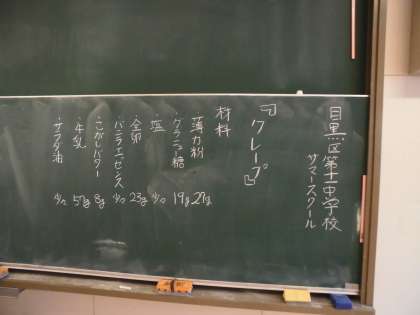 目黒区第十一中学校
サマースクール
『クレープ』
材料
薄力粉 27g
・グラニュ糖 19g
・塩 少々
・全卵 23g
・バニラエッセンス 少々
・こがしバター 8g
・牛乳 57g
・サラダ油 少々